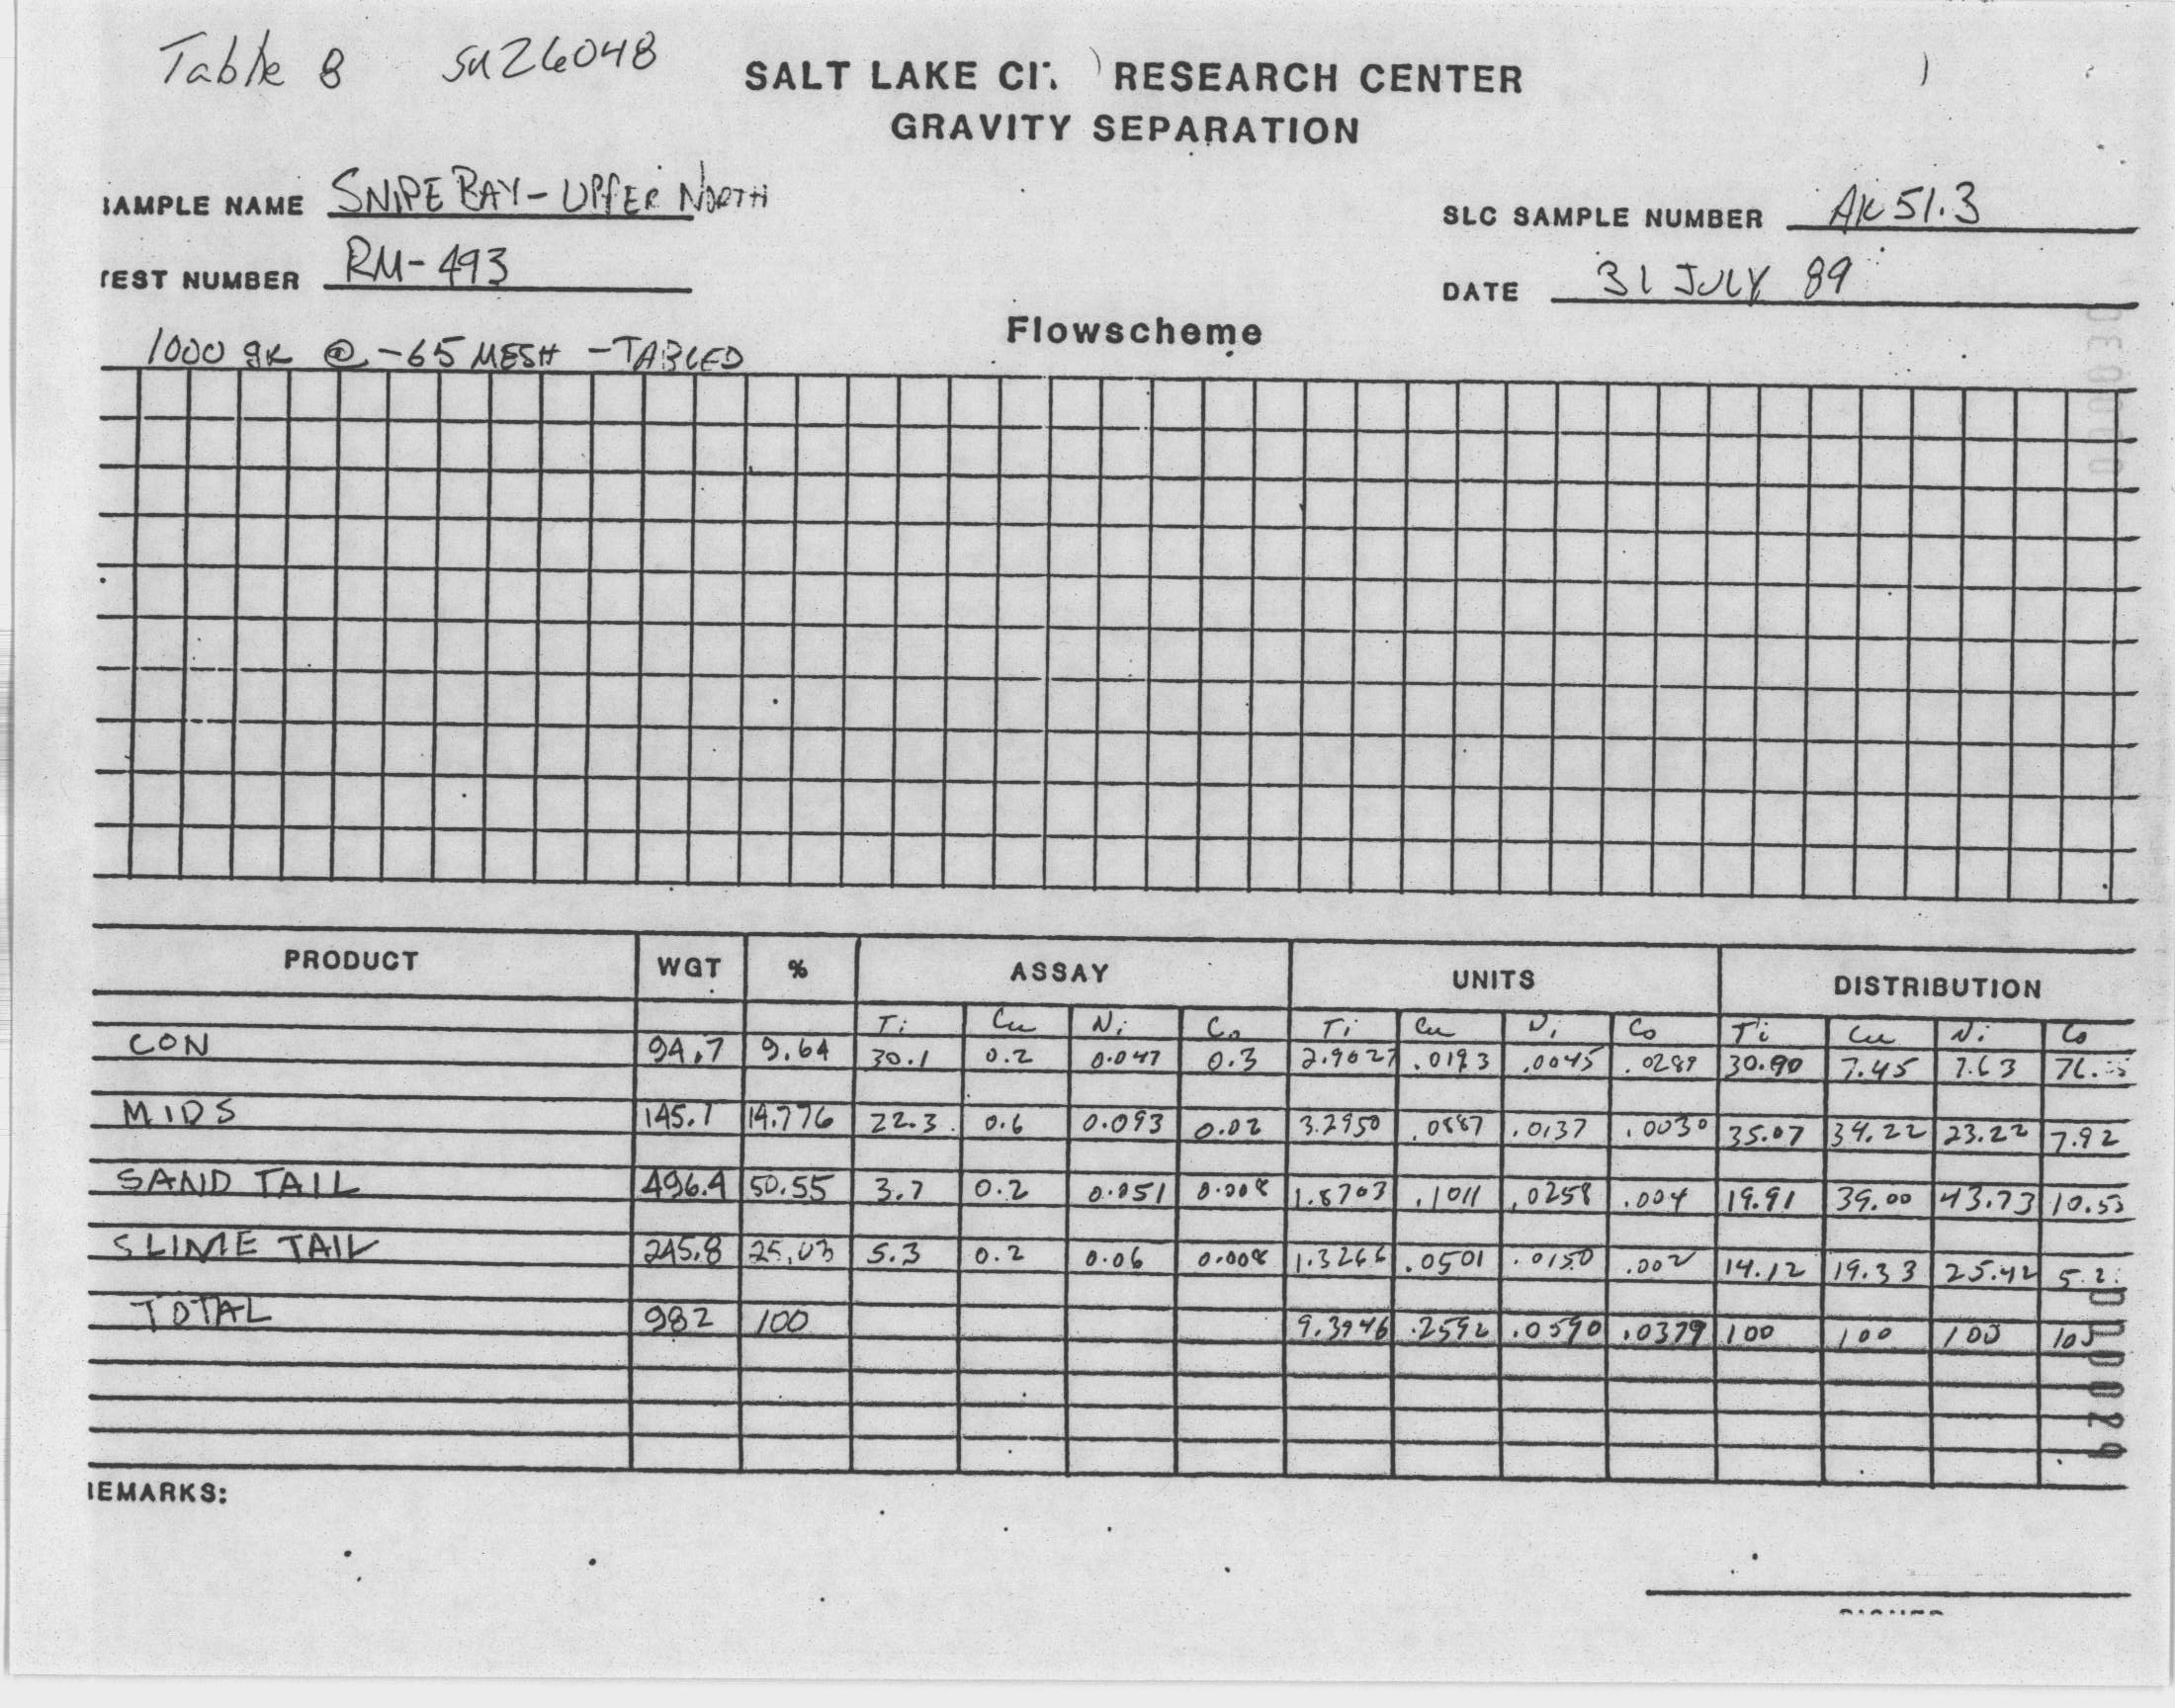 Table 8 SA26048
SALT LAKE CI RESEARCH CENTER
GRAVITY SEPARATION
AMPLE NAME SNIPE BAY - UPPER NORTH
SLC SAMPLE NUMBER AK 51.3
EST NUMBER RM-493
DATE 31 JULY 89
Flowscheme
1000 gr @ -65 MESH - TABLED
PRODUCT WGT % ASSAY UNITS DISTRIBUTION
Ti Cu Ni Co Ti Cu Ni Co Ti Cu Ni Co
CON 94.7 9.64 30.1 0.2 0.047 0.3 2.9027 .0193 .0045 .0289 30.90 7.45 7.63
MIDS 145.1 14.776 22.3 0.6 0.093 0.02 3.2950 .0887 .0137 .0030 35.07 34.22 23.22 7.92
SAND TAIL 496.4 50.55 3.7 0.2 0.051 0.008 1.8703 .1011 .0258 .004 19.91 39.00 43.73 10.55
SLIME TAIL 245.8 25.03 5.3 0.2 0.06 0.008 1.3266 .0501 .0150 .002 14.12 19.33 25.42
TOTAL 982 100 9.3946 .2592 .0590 .0379 100 100 100 100
EMARKS: